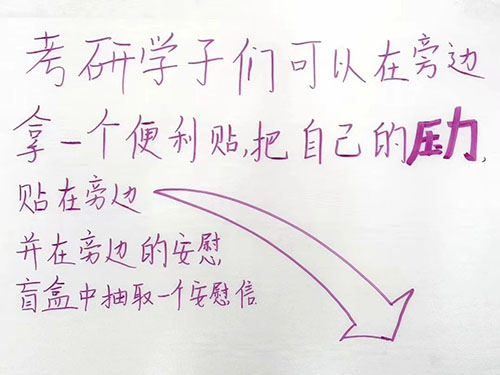 考研学子们可以在旁边
拿一个便利贴,把自己的压力,
贴在旁边
并在旁边的安慰,
盲盒中抽取一个安慰信